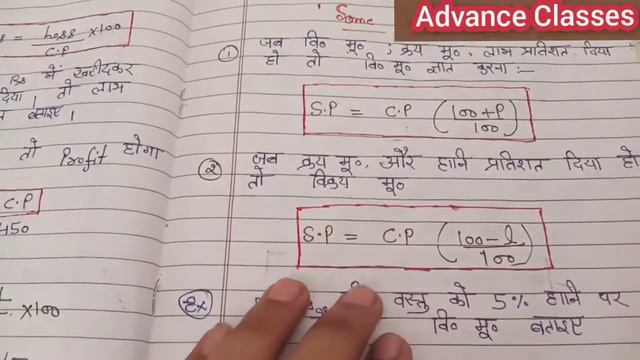 Advance Classes
Some
= Loss/C.P ×100
① जब वि० मू० ; क्रय मू०, लाभ प्रतिशत दिया
हो तो वि० मू० ज्ञात करना :-
S.P = C.P (100+P/100)
में खरीदकर
दिया, तो लाभ
बताइए।
तो Profit होगा
② जब क्रय मू०, और हानि प्रतिशत दिया हो
तो विक्रय मू०
S.P = C.P (100-l/100)
C.P
450
×100
Ex वस्तु को 5% हानि पर
वि० मू० बताइए